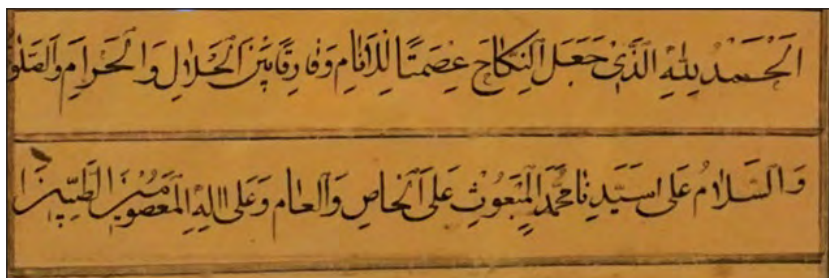 اَلْحَمْدُ لِلّٰهِ الَّذِیْ جَعَلَ النِّکَاحَ عِصْمَتًا لِلْاَنَامِ وَفَارِقًا بَیْنَ الْحَلَالِ وَالْحَرَامِ وَالصَّلٰوة
وَالسَّلَامُ عَلٰی سَیِّدِنَا مُحَمَّدٍ الْمَبْعُوْثِ عَلَی الْخَاصِ وَالْعَامِ وَعَلٰی اٰلِهِ الْمَعْصُوْمِیْنَ الطَّیِّبِیْنَ